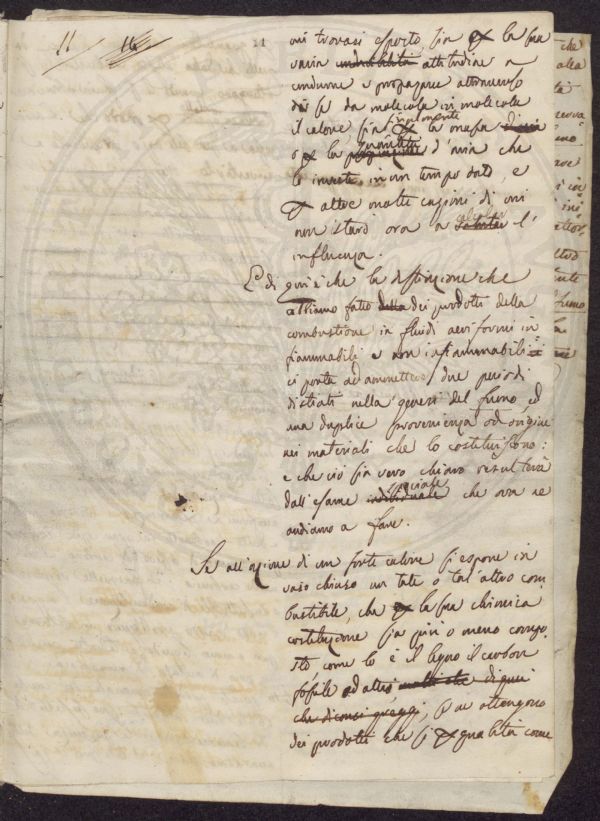 11 11 21
cui trovasi esposto, sia per la sua
varia individualità attitudine a
condurre e propagare attraverso
di se da molecola in molecola
il calore, sia finalmente per la massa
o per la quantità d'aria che
lo investe in un tempo dato, e
per altre molte cagioni di cui
non istarò ora a calcolar l'
influenza.
E di qui è che la distinzione che
abbiamo fatto della dei prodotti della
combustione in fluidi aeriformi in
fiammabili e non infiammabili
ci porta ad ammettere due periodi
distinti nella genesi del fumo, ed
una duplice provenienza od origine
nei materiali che lo costituiscono:
e che ciò sia vero chiaro risulterà
dall'esame individuale speciale che ora ne
andiamo a fare.
Se all'azione di un forte calore si espone in
vaso chiuso un tale o tal altro com
bustibile, che per la sua chimica
costituzione sia più o meno compo
sto, come lo è il legno il carbon
fossile od altri molti che di qui
che diconsi grezzi, se ne ottengono
dei prodotti che si per qualità come